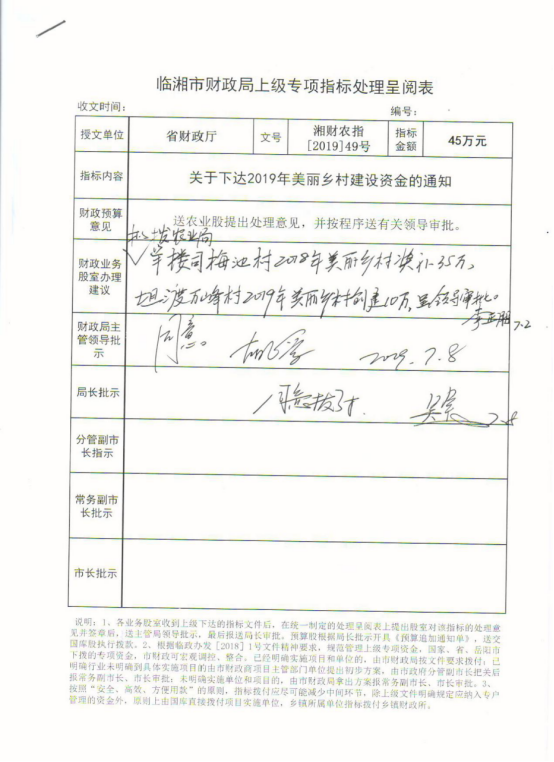 临湘市财政局上级专项指标处理呈阅表
收文时间： 编号：
授文单位 省财政厅 文号 湘财农指[2019]49号 指标金额 45万元
指标内容 关于下达2019年美丽乡村建设资金的通知
财政预算意见 送农业股提出处理意见，并按程序送有关领导审批。
拟拨农业局
财政业务股室办理建议 羊楼司梅池村2018年美丽乡村奖补35万，
坦渡万峰村2019年美丽乡村创建10万，呈领导审批。
7.2
财政局主管领导批示 同意。 2019.7.8
局长批示 同意拨付.
分管副市长指示
常务副市长批示
市长批示
说明：1、各业务股室收到上级下达的指标文件后，在统一制定的处理呈阅表上提出股室对该指标的处理意
见并签章后，送主管局领导批示，最后报送局长审批。预算股根据局长批示开具《预算追加通知单》，送交
国库股执行拨款。2、根据临政办发［2018］1号文件精神要求，规范管理上级专项资金，国家、省、岳阳市
下拨的专项资金，市财政可宏观调控、整合。已经明确实施项目和单位的，由市财政局按文件要求拨付；已
明确行业未明确到具体实施项目的由市财政商项目主管部门单位提出初步方案，由市政府分管副市长把关后
报常务副市长、市长审批；未明确实施单位和项目的，由市财政局拿出方案报常务副市长、市长审批。3、
按照“安全、高效、方便用款”的原则，指标拨付应尽可能减少中间环节，除上级文件明确规定应纳入专户
管理的资金外，原则上由国库直接拨付项目实施单位，乡镇所属单位指标拨付乡镇财政所。